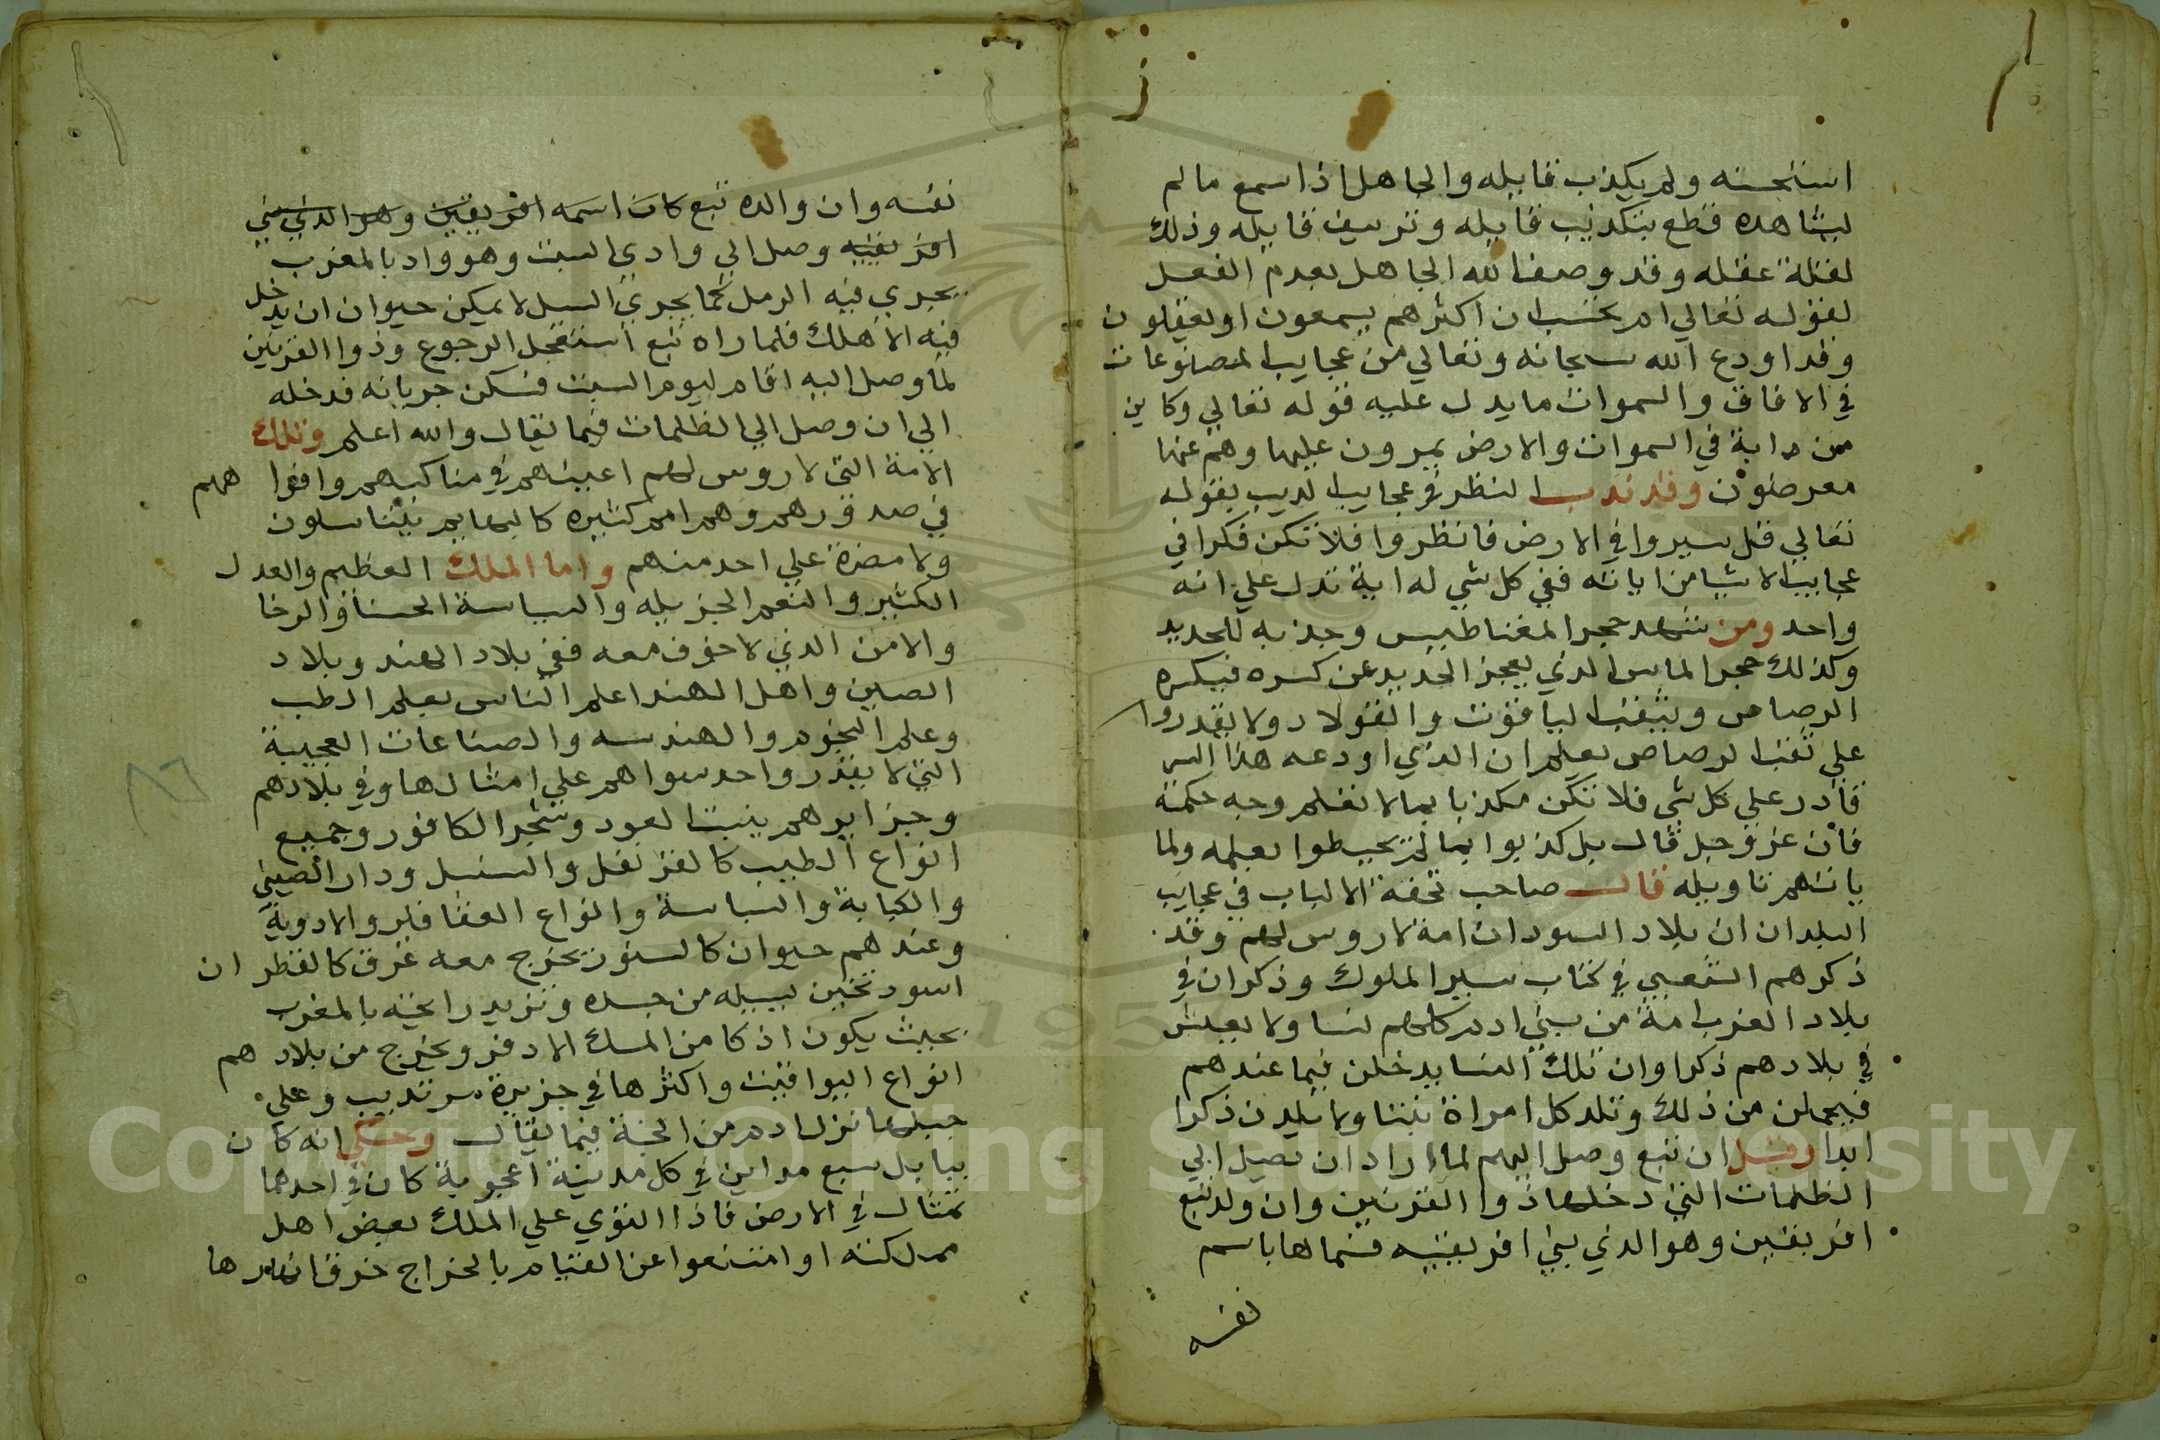 استحسنه ولم يكذب قايله والجاهل اذا سمع مالم
يشاهده قطع بتكذيب قايله وتزييف قايله وذلك
لقلة عقله وقد وصف الله الجاهل بعدم العقل
لقوله تعالي ام يحسب ان اكثرهم يسمعون او يعقلون
وقد اودع الله سبحانه وتعالي من عجايب المصنوعات
في الافاق والسموات ما يدل عليه قوله تعالي وكاين
من دابة في السموات والارض يمرون عليها وهم عنها
معرضون وقد ندب النظر في عجايب بقوله
تعالي قل سيروا في الارض فانظروا فلا تكن فكرا في
عجايب الاشيا من اياته ففي كل شي له اية تدل علي انه
واحد ومن شهد حجر المغناطيس وجذبه للحديد
وكذلك حجر الماس الذي يعجز الحديد عن كسره فيكسره
الرصاص ويثقب الياقوت والفولاد ولا يقدروا
علي ثقب الرصاص يعلم ان الذي اودعه هذا السر
قادر علي كل شي فلا تكن مكذبا بما لا تعلم وجه حكمته
فان عز وجل قال بل كذبوا بما لم يحيطوا بعلمه ولما
ياتهم تاويله قال صاحب تحفة الالباب في عجايب
البلدان ان بلاد السودان امة لا روس لهم وقد
ذكرهم الشعبي في كتاب سير الملوك وذكر ان في
بلاد المغرب امة من بني ادم كلهم نسا ولا يعيش
في بلادهم ذكر وان تلك النسا يدخلن فيما عندهم
فيحملن من ذلك وتلد كل امراة بنتا ولا يلدن ذكرا
ابدا وقيل ان تبع وصل اليهم لما اراد ان يصل الي
الظلمات التي دخلها ذوا القرنين وان ولد تبع
افريقين وهو الذي بني افريقيه فسماها باسم
نفسه
نفسه وان والده تبع كان اسمه افريقين وهو الذي بني
افريقيه وصل الي وادي السبت وهو واد بالمغرب
يجري فيه الرمل كما يجري السيل لا يمكن حيوان ان يدخل
فيه الا هلك فلما راه تبع استعجل الرجوع وذوا القرنين
لما وصل اليه اقام ليوم السبت فسكن جريانه فدخله
الي ان وصل الي الظلمات فيما يقال والله اعلم وتلك
الامة التي لا روس لهم اعينهم في مناكبهم وافواههم
في صدورهم وهم امم كثيره كالبهايم يتناسلون
ولا مضرة علي احد منهم واما الملك العظيم والعدل
الكثير والنعم الجزيله والسياسة الحسنة والرخا
والامن الذي لا خوف معه ففي بلاد الهند وبلاد
الصين واهل الهند اعلم الناس بعلم الطب
وعلم النجوم والهندسه والصناعات العجيبة
التي لا يقدر واحد سواهم علي امثالها وفي بلادهم
وجزايرهم ينبت العود وشجر الكافور وجميع
انواع الطيب كالقرنفل والسنبل ودار الصيني
والكبابة والبسباسة وانواع العقاقير والادوية
وعندهم حيوان كالسنور يخرج معه عرق كالقطران
اسود ثخين يسيله من جسده وتزيد رايحته بالمغرب
بحيث يكون اذكا من المسك الادفر ويخرج من بلادهم
انواع اليواقيت واكثرها في جزيرة سرنديب وعلي
جبلها نزل ادم من الجنة فيما يقال وحكي انه كان
ببابل سبع مداين في كل مدينة اعجوبة كان في احدهما
تمثال في الارض فاذا التوي علي الملك بعض اهل
مملكته او امتنعوا عن القيام بالخراج خرق انهارها
٨٦
Copyright © King Saud University
195